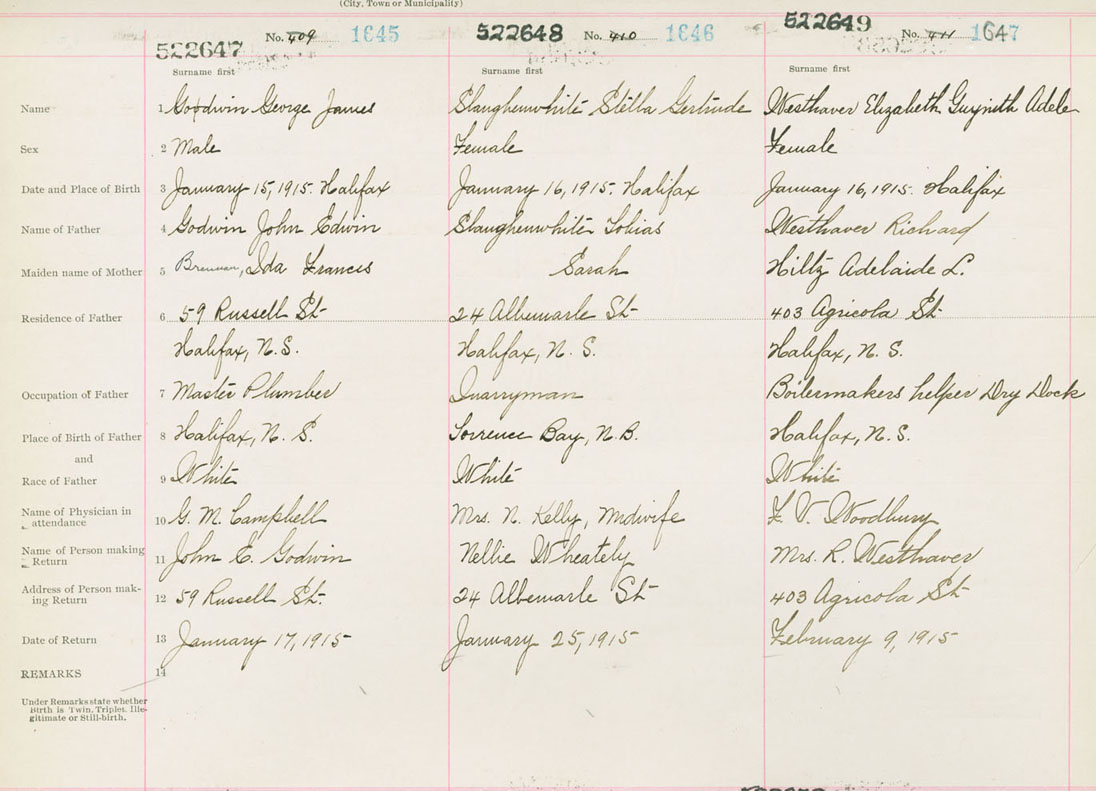 (City, Town or Municipality)
522647 No. 409 1645 522648 No. 410 1646 522649 No. 411 1647
Surname first Surname first Surname first
Name 1 Goodwin George James Slaughenwhite Stella Gertrude Westhaver Elizabeth Gwynith Adele
Sex 2 Male Female Female
Date and Place of Birth 3 January 15, 1915. Halifax January 16, 1915. Halifax January 16, 1915. Halifax
Name of Father 4 Godwin John Edwin Slaughenwhite Tobias Westhaver Richard
Maiden name of Mother 5 Brennan, Ida Francis Sarah Hiltz Adelaide L.
Residence of Father 6 59 Russell St 24 Albemarle St 403 Agricola St
Halifax, N.S. Halifax, N.S. Halifax, N.S.
Occupation of Father 7 Master Plumber Quarryman Boilermakers helper Dry Dock
Place of Birth of Father 8 Halifax, N.S. Torrence Bay, N.B. Halifax, N.S.
and
Race of Father 9 White White White
Name of Physician in
attendance 10 G. M. Campbell Mrs. N. Kelly, Midwife F. V. Woodbury
Name of Person making
Return 11 John E. Godwin Nellie Wheately Mrs. R. Westhaver
Address of Person mak-
ing Return 12 59 Russell St. 24 Albemarle St 403 Agricola St
Date of Return 13 January 17, 1915 January 25, 1915 February 9, 1915
REMARKS 14
Under Remarks state whether
Birth is Twin, Triplet, Ille-
gitimate or Still-birth.